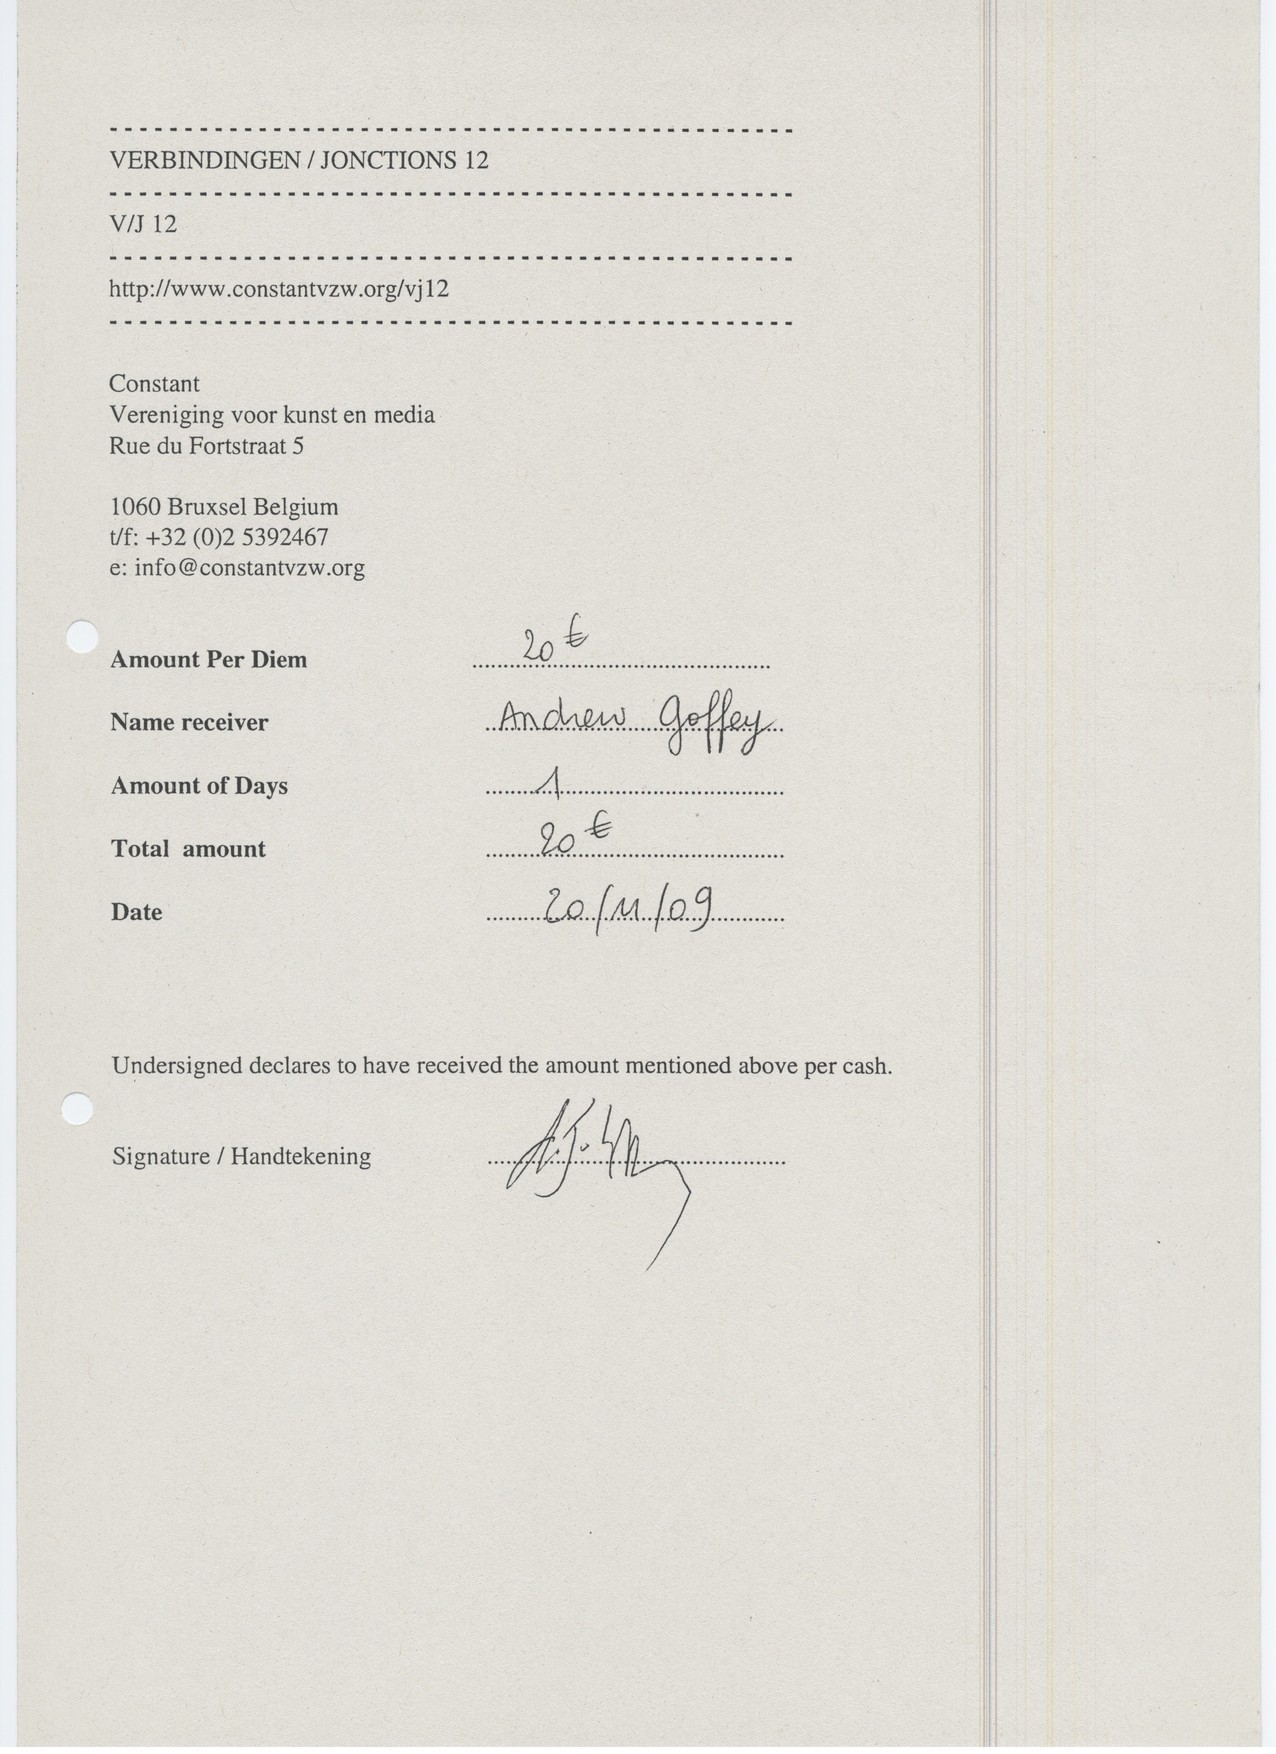 VERBINDINGEN / JONCTIONS 12
V/J 12
http://www.constantvzw.org/vj12
Constant
Vereniging voor kunst en media
Rue du Fortstraat 5
1060 Bruxsel Belgium
t/f: +32 (0)2 5392467
e: info@constantvzw.org
Amount Per Diem 20 €
Name receiver Andrew Goffey
Amount of Days 1
Total amount 20 €
Date 20/11/09
Undersigned declares to have received the amount mentioned above per cash.
Signature / Handtekening